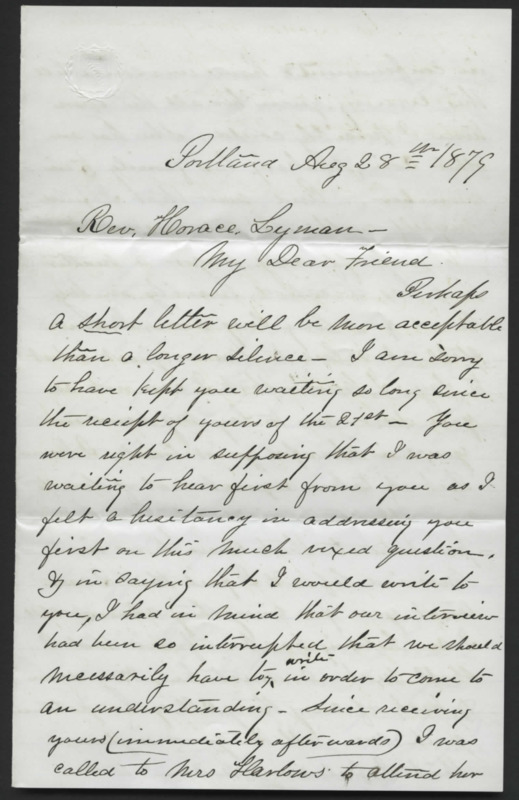 Portland Aug 28th 1879
Rev. Horace Lyman –
My Dear Friend.
Perhaps
a short letter will be more acceptable
than a longer silence – I am sorry
to have kept you waiting so long since
the receipt of yours of the 21st – You
were right in supposing that I was
waiting to hear first from you as I
felt a hesitancy in addressing you
first on this much vexed question.
& in saying that I would write to
you, I had in mind that our interview
had been so interrupted that we should
necessarily have to write in order to come to
an understanding – Since receiving
yours (immediately afterwards) I was
called to Mrs Harlows to attend her